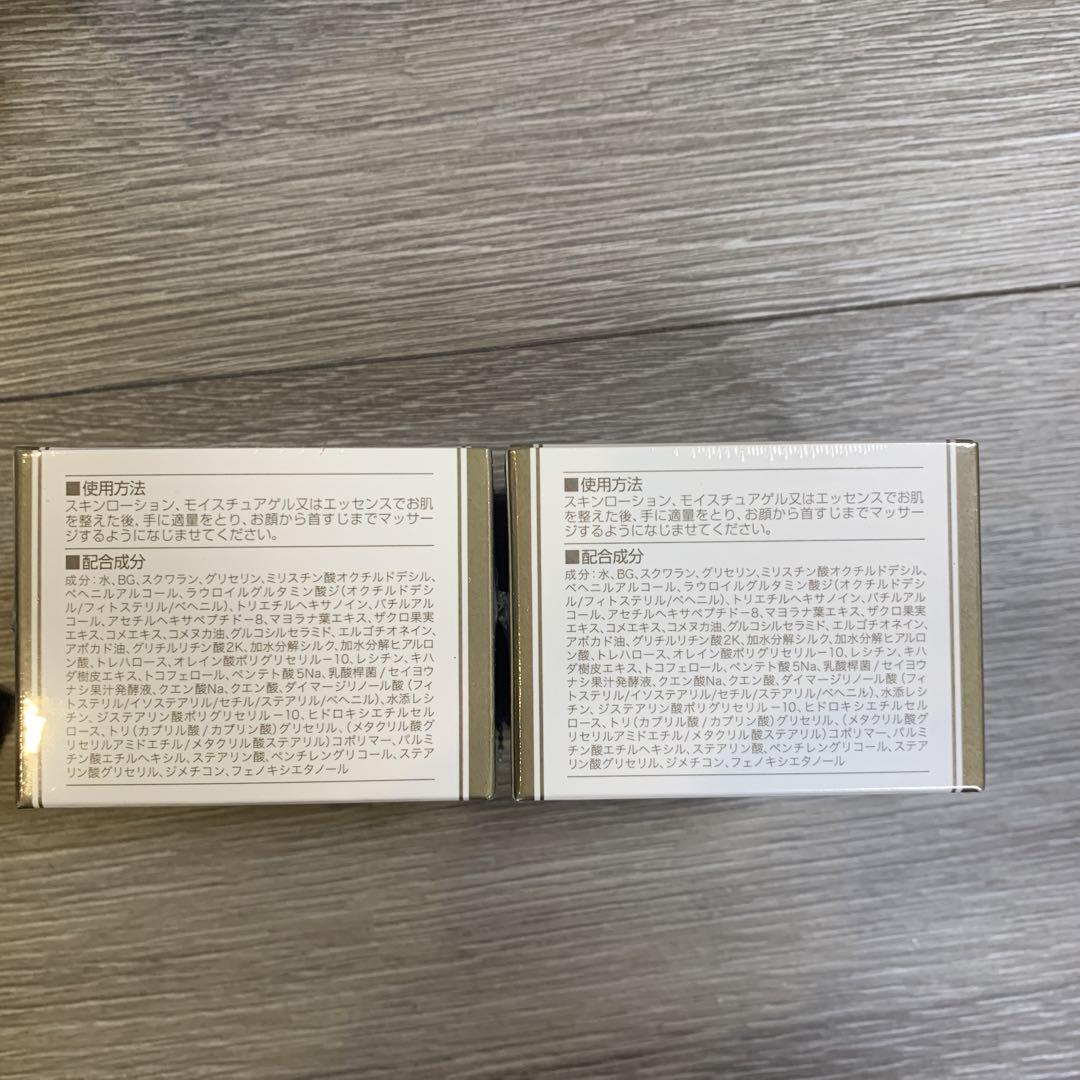 ■使用方法
スキンローション、モイスチュアゲル又はエッセンスでお肌
を整えた後、手に適量をとり、お顔から首すじまでマッサー
ジするようになじませてください。
■配合成分
成分：水、BG、スクワラン、グリセリン、ミリスチン酸オクチルドデシル、
ベヘニルアルコール、ラウロイルグルタミン酸ジ（オクチルドデシ
ル/フィトステリル/ベヘニル）、トリエチルヘキサノイン、バチルアル
コール、アセチルヘキサペプチドー8、マヨラナ葉エキス、ザクロ果実
エキス、コメエキス、コメヌカ油、グルコシルセラミド、エルゴチオネイン、
アボカド油、グリチルリチン酸2K、加水分解シルク、加水分解ヒアルロ
ン酸、トレハロース、オレイン酸ポリグリセリルー10、レシチン、キハ
ダ樹皮エキス、トコフェロール、ペンテト酸5Na、乳酸桿菌/セイヨウ
ナシ果汁発酵液、クエン酸Na、クエン酸、ダイマージリノール酸（フィ
トステリル/イソステアリル/セチル/ステアリル/ベヘニル）、水添レシ
チン、ジステアリン酸ポリグリセリルー10、ヒドロキシエチルセル
ロース、トリ（カプリル酸/カプリン酸）グリセリル、（メタクリル酸グ
リセリルアミドエチル/メタクリル酸ステアリル）コポリマー、パルミ
チン酸エチルヘキシル、ステアリン酸、ペンチレングリコール、ステア
リン酸グリセリル、ジメチコン、フェノキシエタノール
■使用方法
スキンローション、モイスチュアゲル又はエッセンスでお肌
を整えた後、手に適量をとり、お顔から首すじまでマッサー
ジするようになじませてください。
■配合成分
成分：水、BG、スクワラン、グリセリン、ミリスチン酸オクチルドデシル、
ベヘニルアルコール、ラウロイルグルタミン酸ジ（オクチルドデシ
ル/フィトステリル/ベヘニル）、トリエチルヘキサノイン、バチルアル
コール、アセチルヘキサペプチドー8、マヨラナ葉エキス、ザクロ果実
エキス、コメエキス、コメヌカ油、グルコシルセラミド、エルゴチオネイン、
アボカド油、グリチルリチン酸2K、加水分解シルク、加水分解ヒアルロ
ン酸、トレハロース、オレイン酸ポリグリセリルー10、レシチン、キハ
ダ樹皮エキス、トコフェロール、ペンテト酸5Na、乳酸桿菌/セイヨウ
ナシ果汁発酵液、クエン酸Na、クエン酸、ダイマージリノール酸（フィ
トステリル/イソステアリル/セチル/ステアリル/ベヘニル）、水添レシ
チン、ジステアリン酸ポリグリセリルー10、ヒドロキシエチルセル
ロース、トリ（カプリル酸/カプリン酸）グリセリル、（メタクリル酸グ
リセリルアミドエチル/メタクリル酸ステアリル）コポリマー、パルミ
チン酸エチルヘキシル、ステアリン酸、ペンチレングリコール、ステア
リン酸グリセリル、ジメチコン、フェノキシエタノール